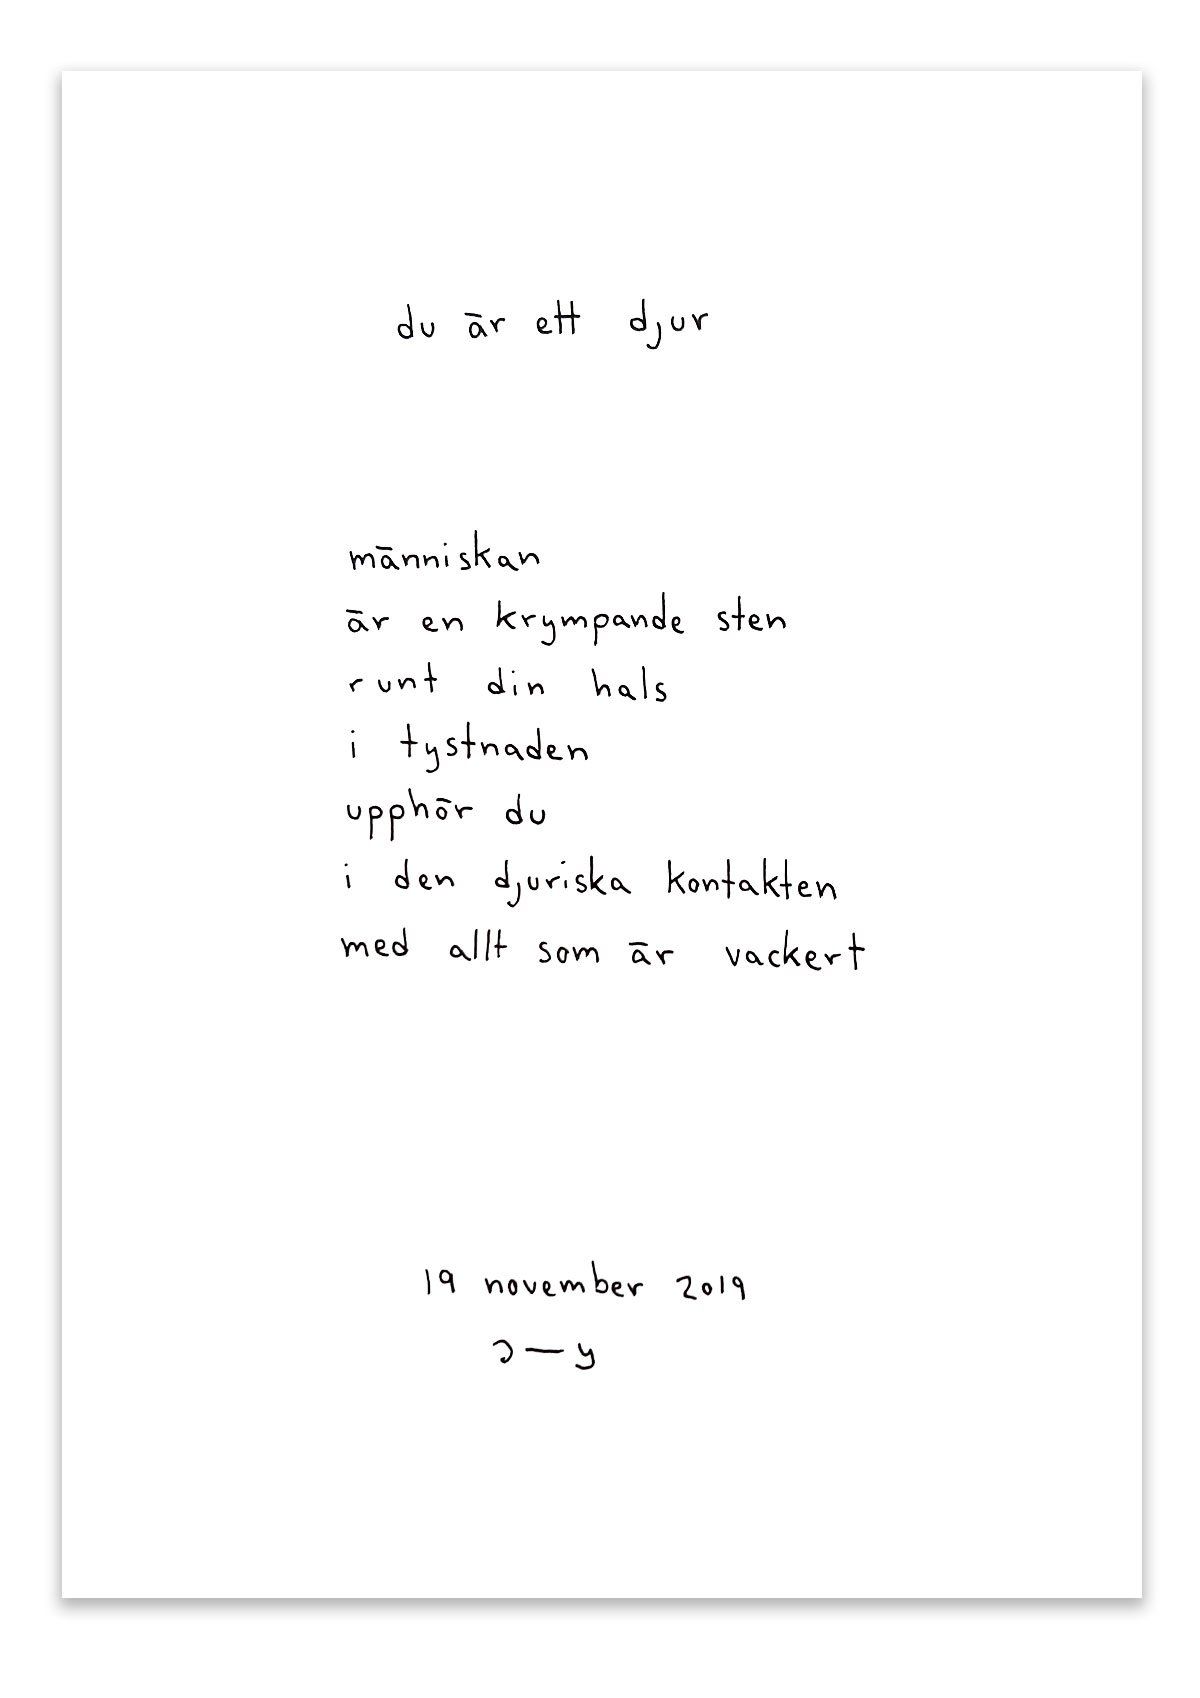 du är ett djur
människan
är en krympande sten
runt din hals
i tystnaden
upphör du
i den djuriska kontakten
med allt som är vackert
19 november 2019
ɔ—y